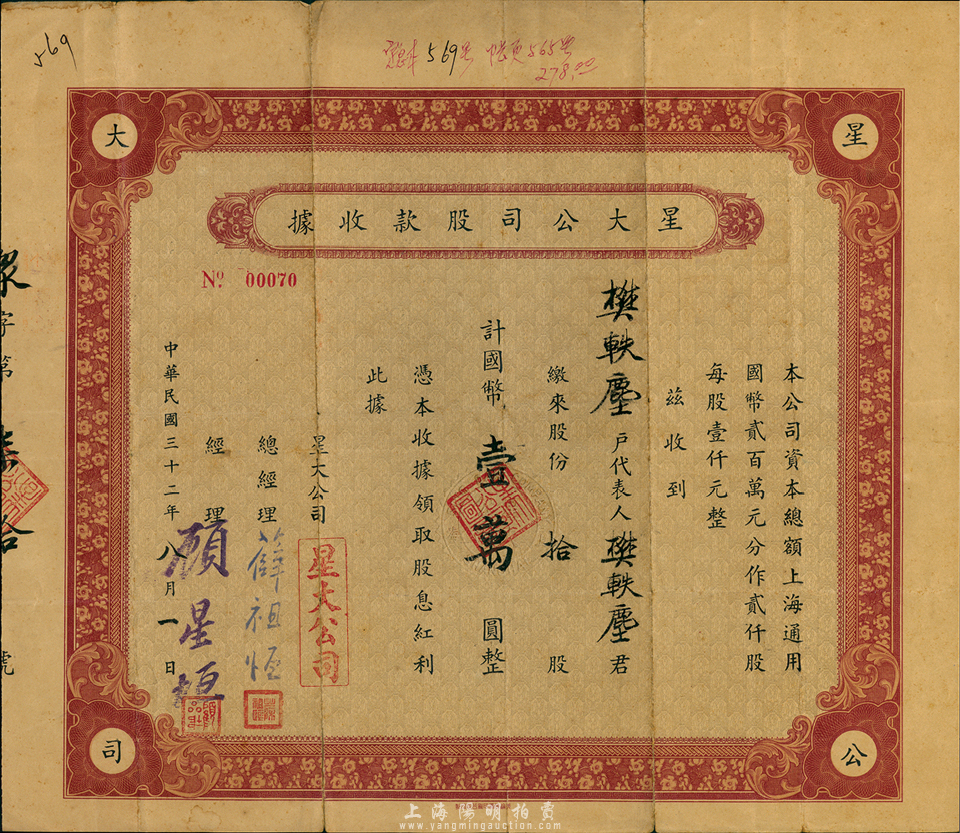 569
569号 565号
278.00
星大公司
星大公司股款收據
No. 00070
本公司資本總額上海通用
國幣貳百萬元分作貳仟股
每股壹仟元整
茲收到
樊軼塵戶代表人樊軼塵君
繳來股份拾股
計國幣壹萬圓整
憑本收據領取股息紅利
此據
星大公司
星大公司
總經理 薛祖恆
經理 顧星垣
中華民國三十二年八月一日
字第 拾 號
上海陽明拍賣
www.yangmingauction.com